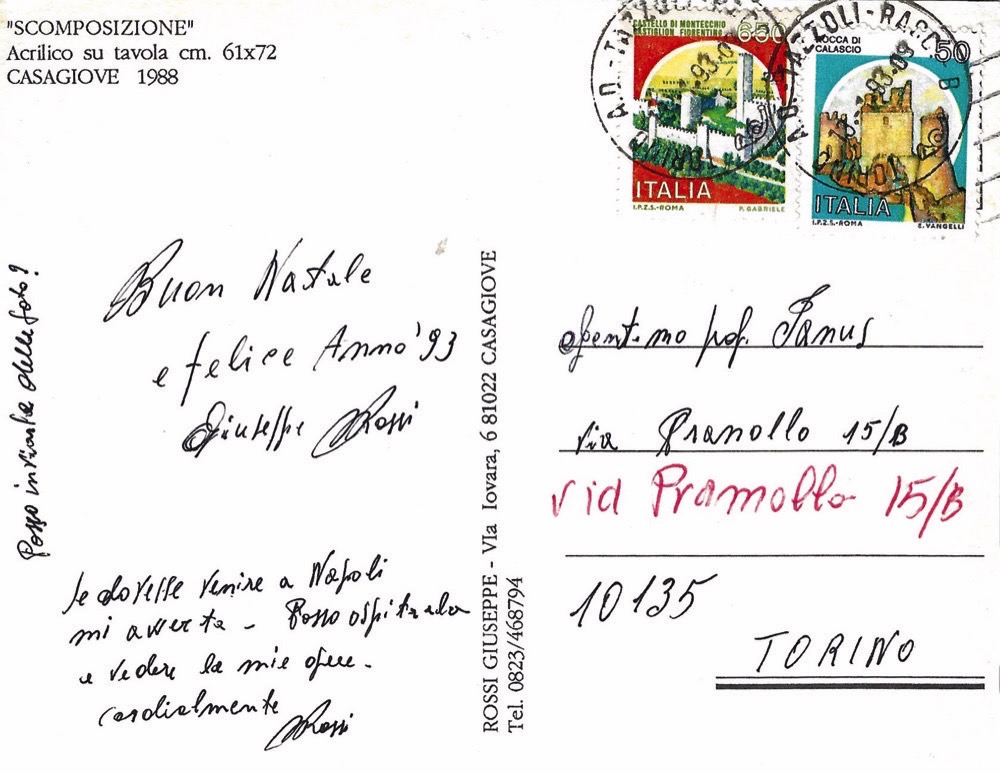 "SCOMPOSIZIONE"
Acrilico su tavola cm. 61x72
CASAGIOVE 1988
CASTELLO DI MONTECCHIO
CASTIGLION FIORENTINO
650
ITALIA
I.P.Z.S.-ROMA P. GABRIELE
ROCCA DI
CALASCIO
50
ITALIA
I.P.Z.S.-ROMA E. VANGELLI
A.D. TAZZOLI-RACC.
TORINO
A.D. TAZZOLI-RACC.
TORINO
Posso inviarle delle foto?
Buon Natale
e felice Anno '93
Giuseppe Rossi
se dovesse venire a Napoli
mi avverta - Posso ospitarla
e vedere le mie opere -
cordialmente
Rossi
ROSSI GIUSEPPE - VIa Iovara, 6 81022 CASAGIOVE
Tel. 0823/468794
prof. Janus
via Pranollo 15/B
via Pramollo 15/B
10135
TORINO